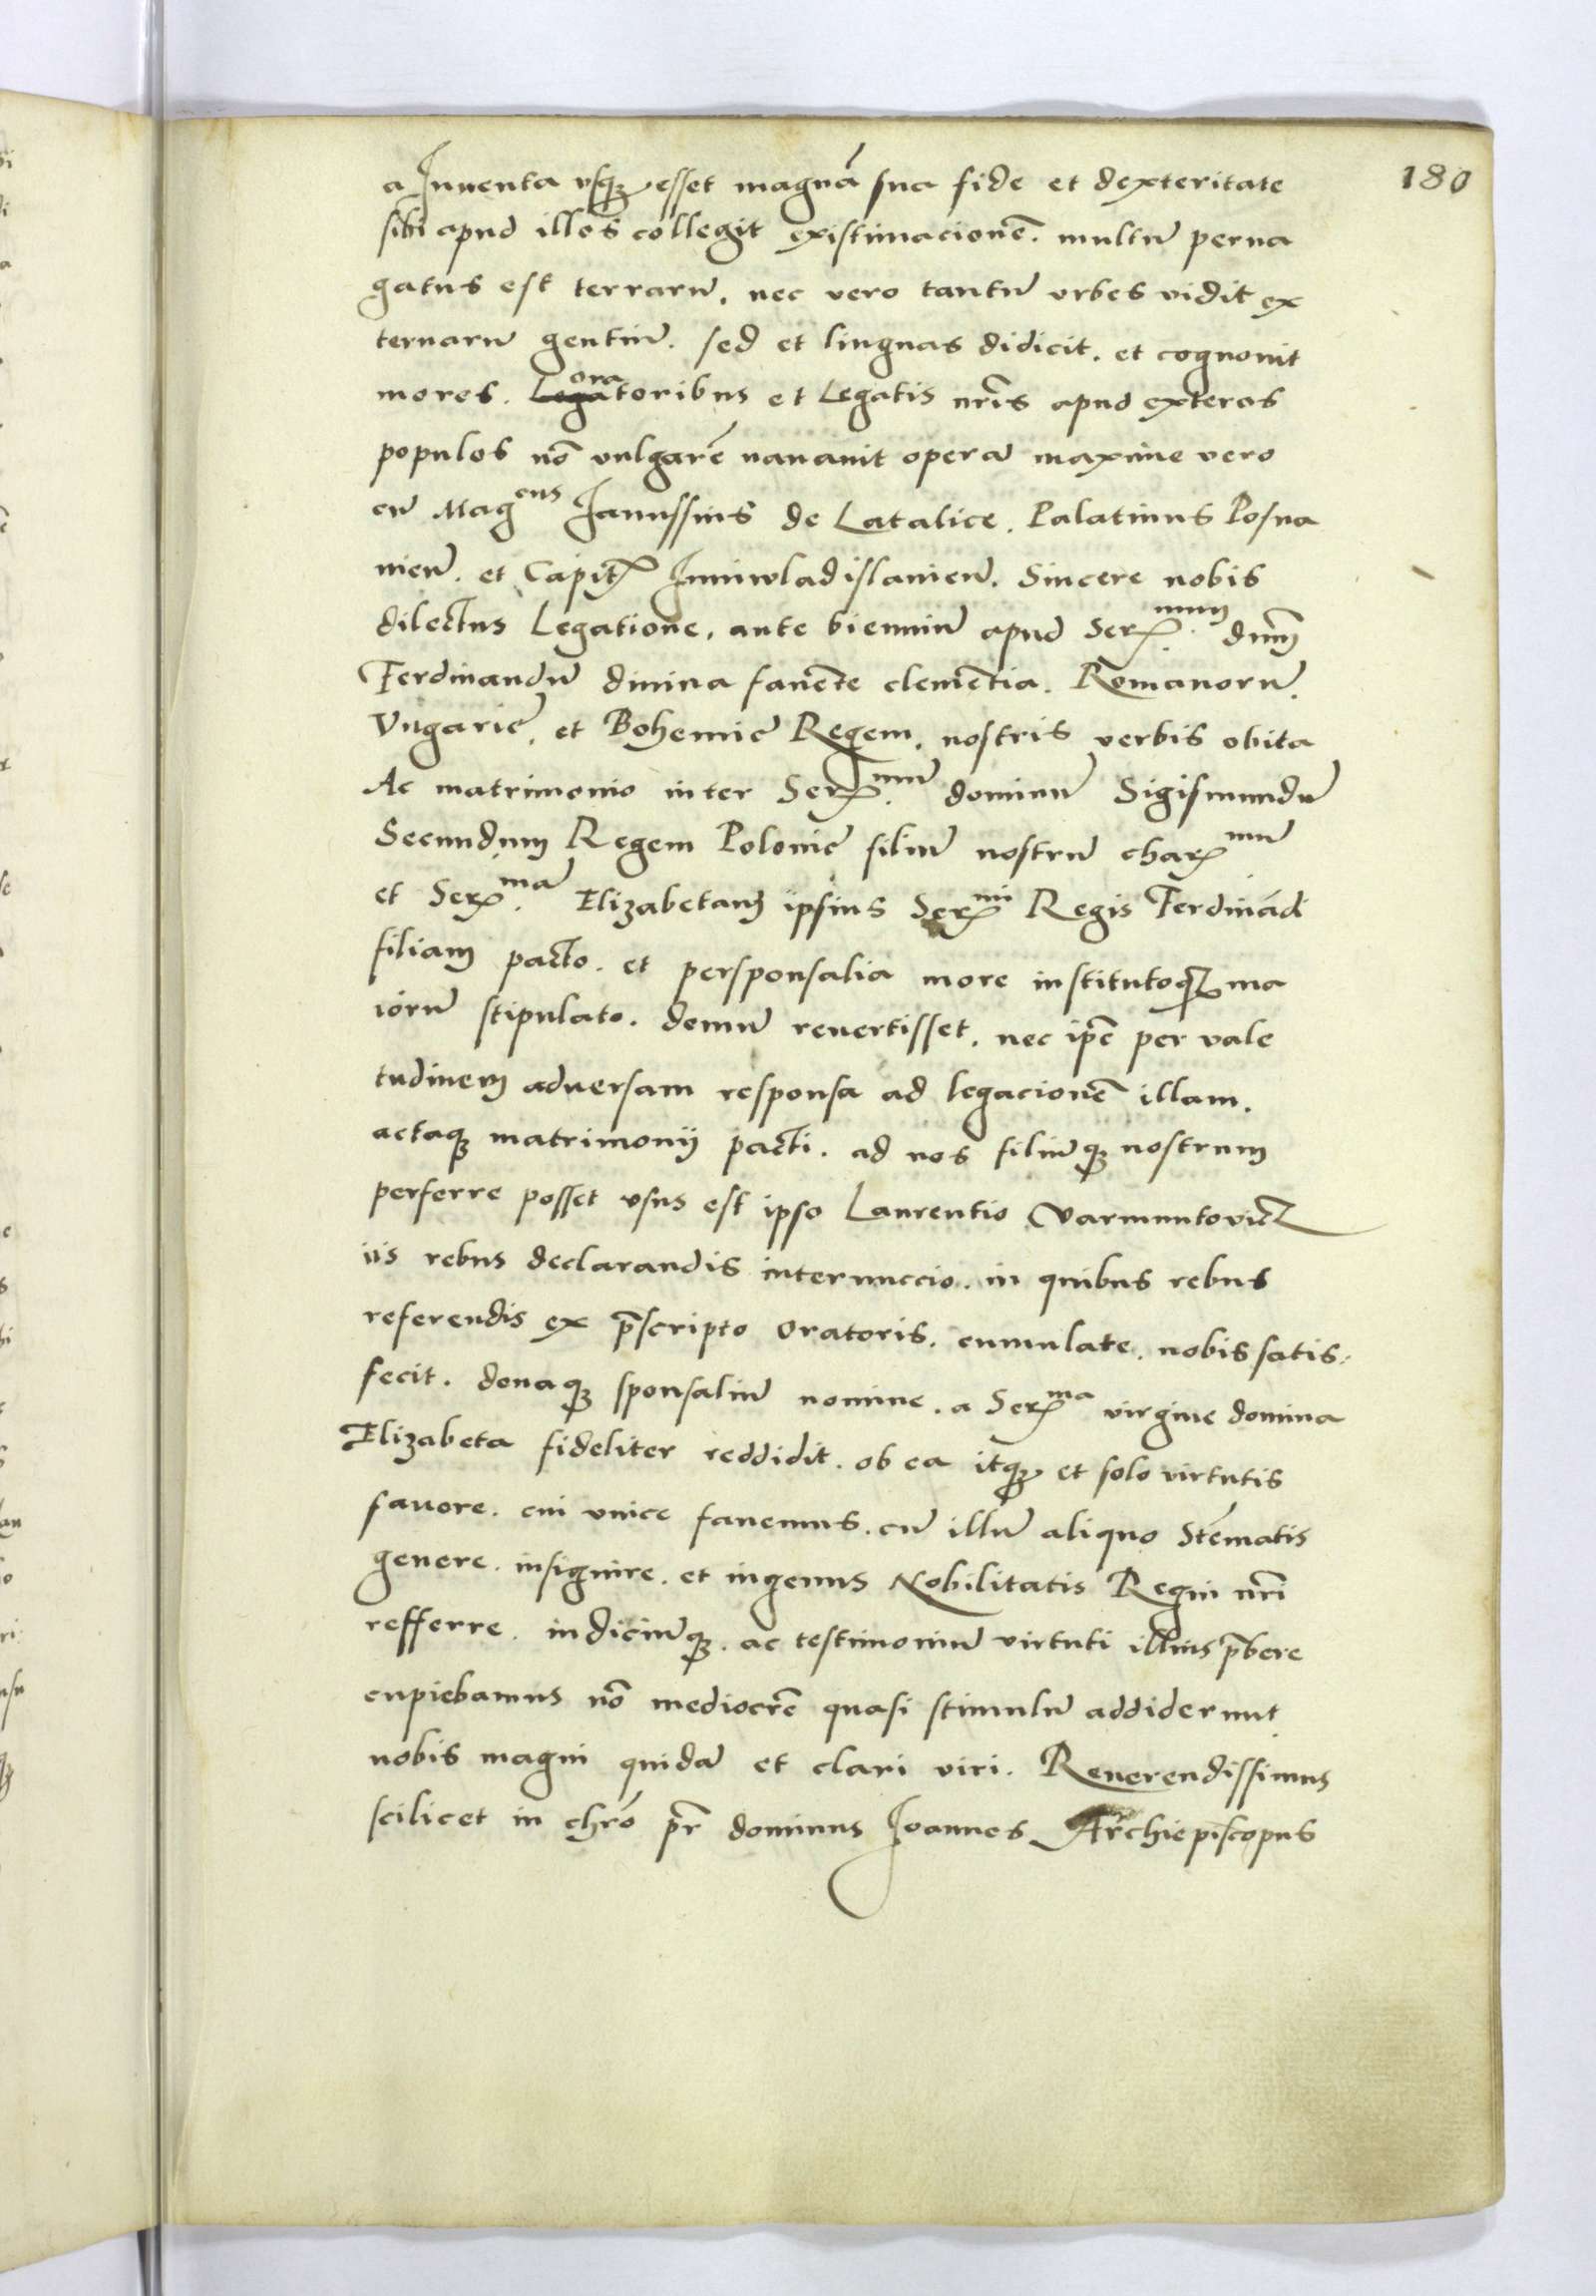 180
a Iuuenta vsq₃ esset magnā sua fide et dexteritate
sibi apud illos collegit existimacionē. multū perua
gatus est terrarū. nec vero tantū vrbes vidit ex
ternarū gentiū. sed et linguas didicit. et cognouit
mores. Lega oratoribus et Legatis nr̄is apud exteros
populos nō vulgarē nauauit operā maxime vero
cū Magcus Janussius de Latalice. Palatinus Posna
nieñ. et Capit. Juniwladislauieñ. Sincere nobis
dilectus Legatione. ante bienniū apud Ser.mum dnm̄
Ferdinandū diuina fauēte clemētia. Romanorū.
Vngarię. et Bohemię Regem. nostris verbis obita
Ac matrimonio inter Ser.mū dominū Sigismundū
Secundum Regem Polonię filiū nostrū char.mū
et Ser.mā Elizabetam ipsius Ser.mi Regis Ferdinādi
filiam pacto. et persponsalia more institutoq₃ ma
iorū stipulato. demū reuertisset. nec ip̄e per vale
tudinem aduersam responsa ad legacionē illam.
actaq₃ matrimonij pacti. ad nos filiūq₃ nostrum
perferre posset vsus est ipso Laurentio Varmuntovicz
iis rebus declarandis internuccio. in quibus rebus
referendis ex p̄scripto Oratoris. cumulate. nobis satis.
fecit. donaq₃ sponsaliū nomine. a Ser.ma virgine domina
Elizabeta fideliter reddidit. ob ea itq₃ et solo virtutis
fauore. cui vnice fauemus. cū illū aliquo Stēmatis
genere. insignire. et in genus Nobilitatis Regni nr̄i
refferre. indiciūq₃. ac testimoniū virtuti illius p̄bere
cupiebamus nō mediocrē quasi stimulū addiderunt
nobis magni quidā et clari viri. Reuerendissimus
scilicet in chrō pr̄ dominus Joannes Archiepiscopus